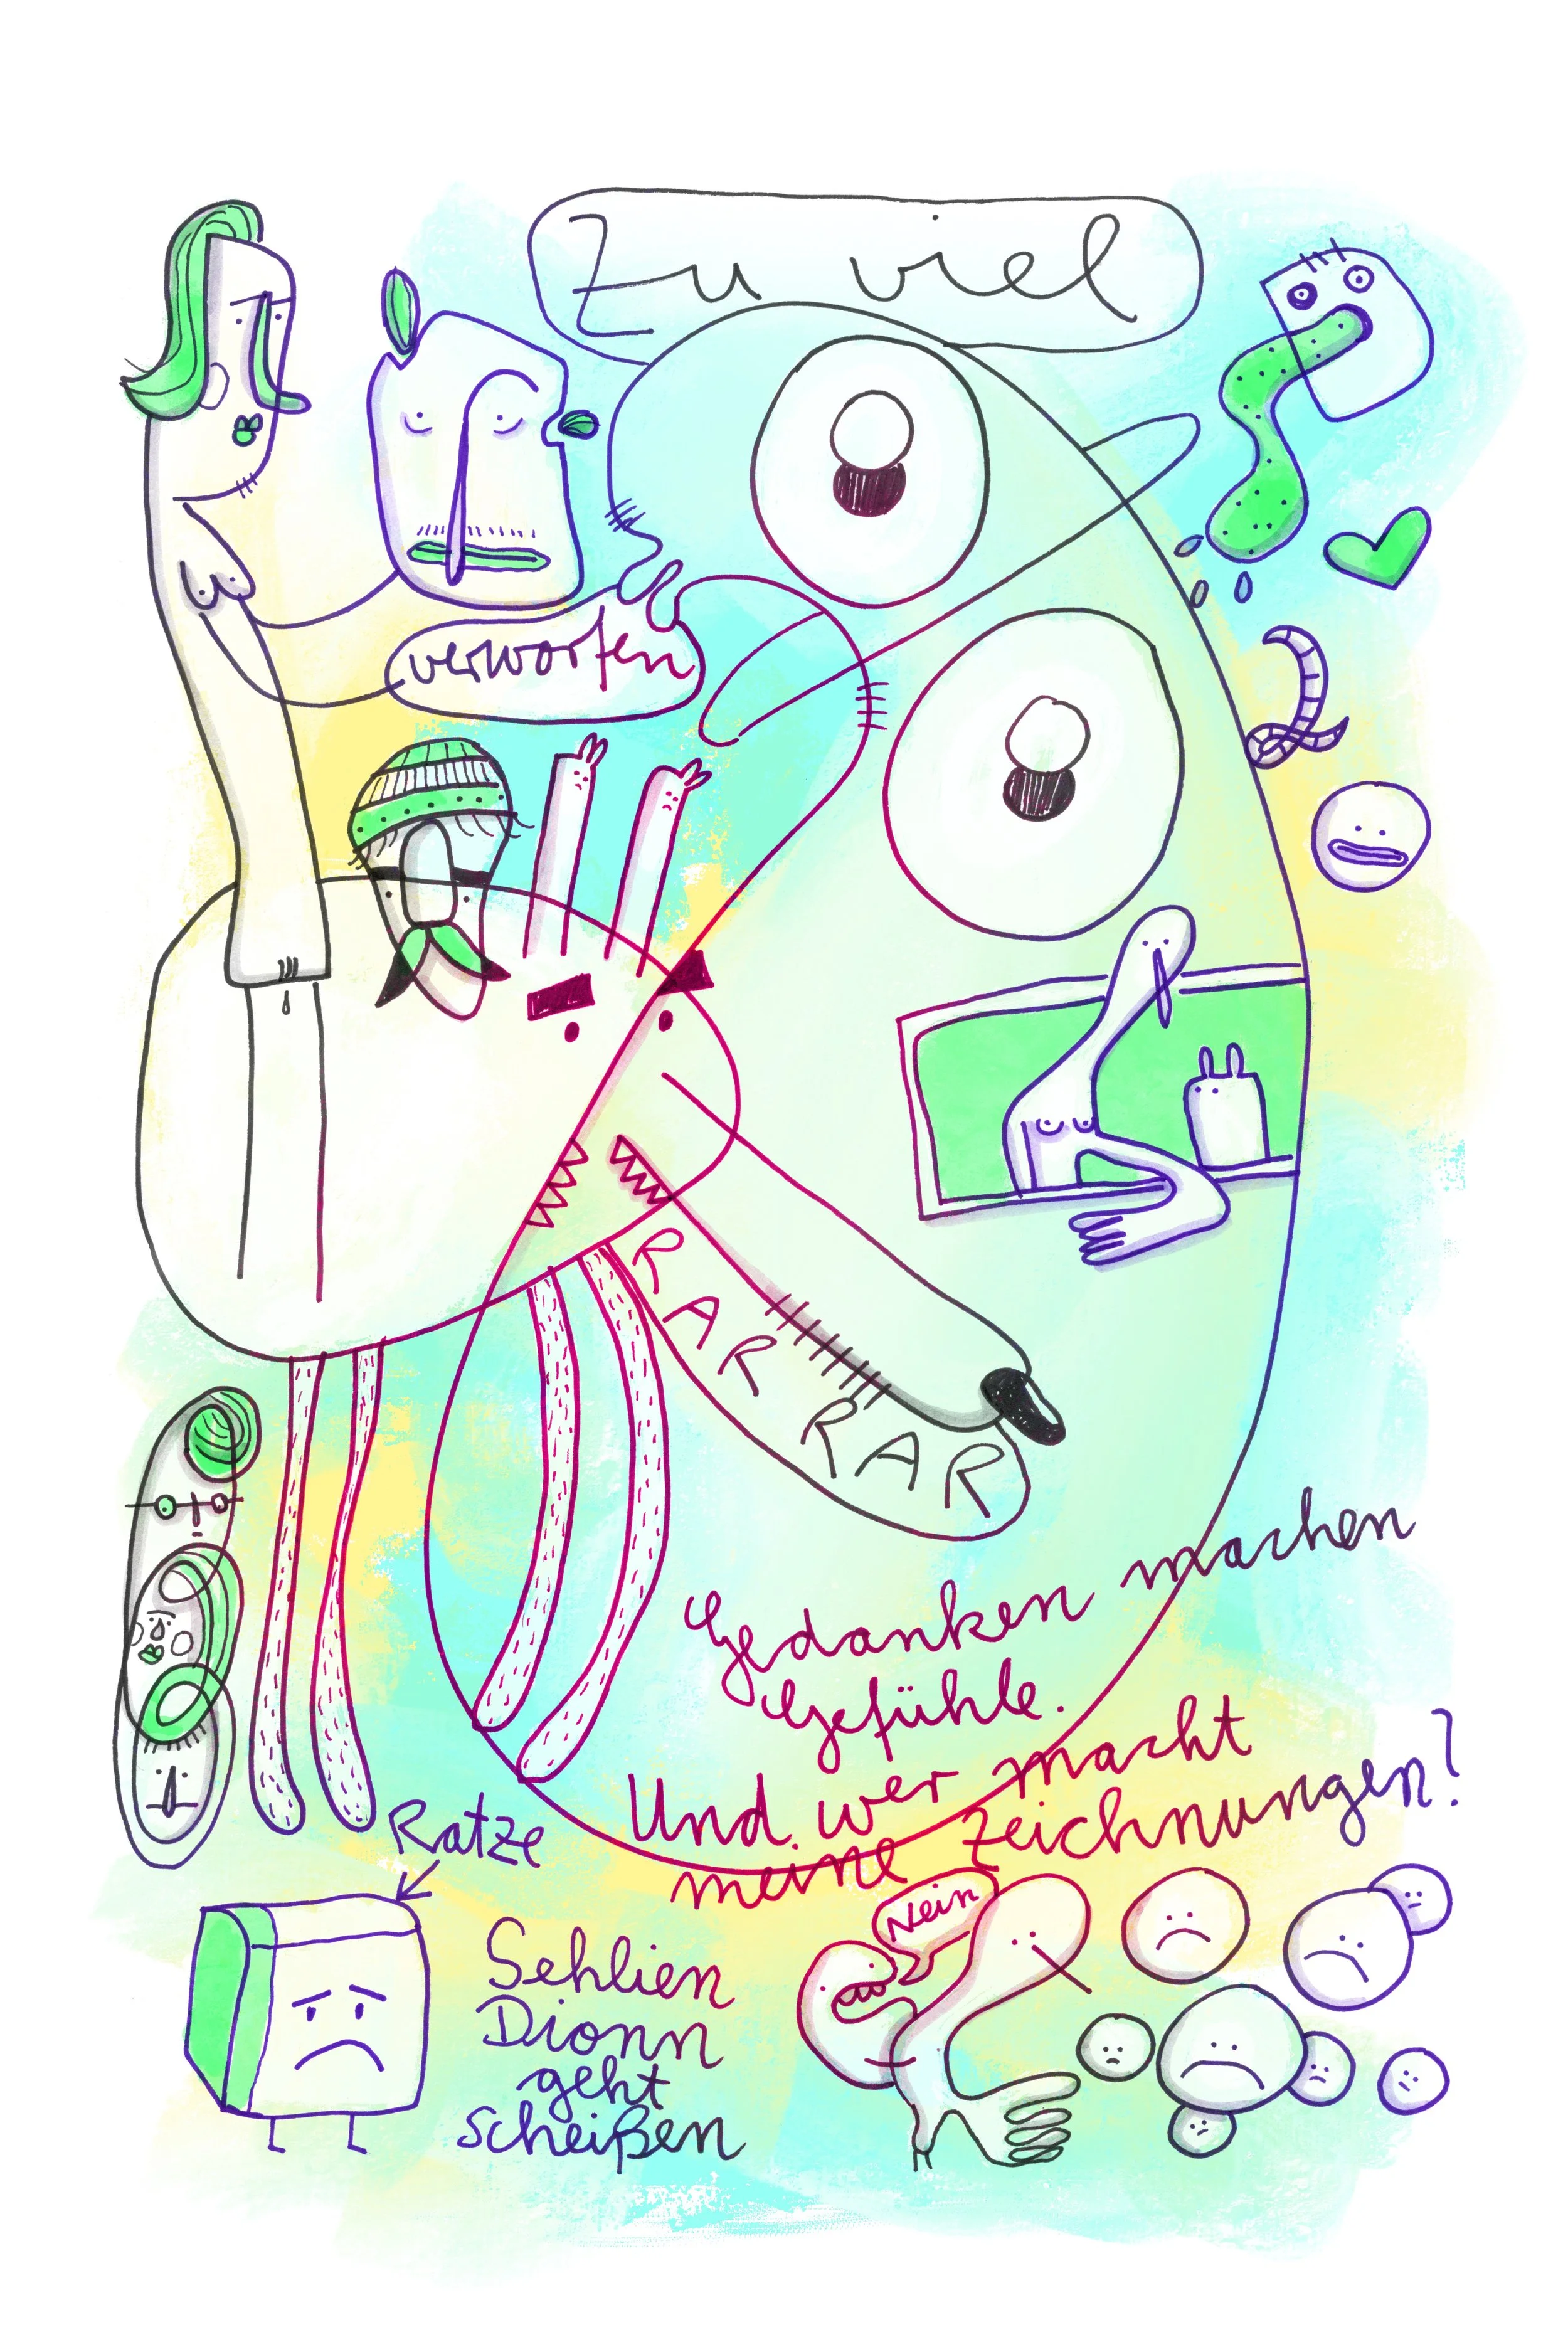 Zu viel
verworfen
RAR RAR
Gedanken machen
Gefühle.
Und wer macht
meine Zeichnungen?
Ratze
Nein
Sehlien
Dionn
geht
scheißen